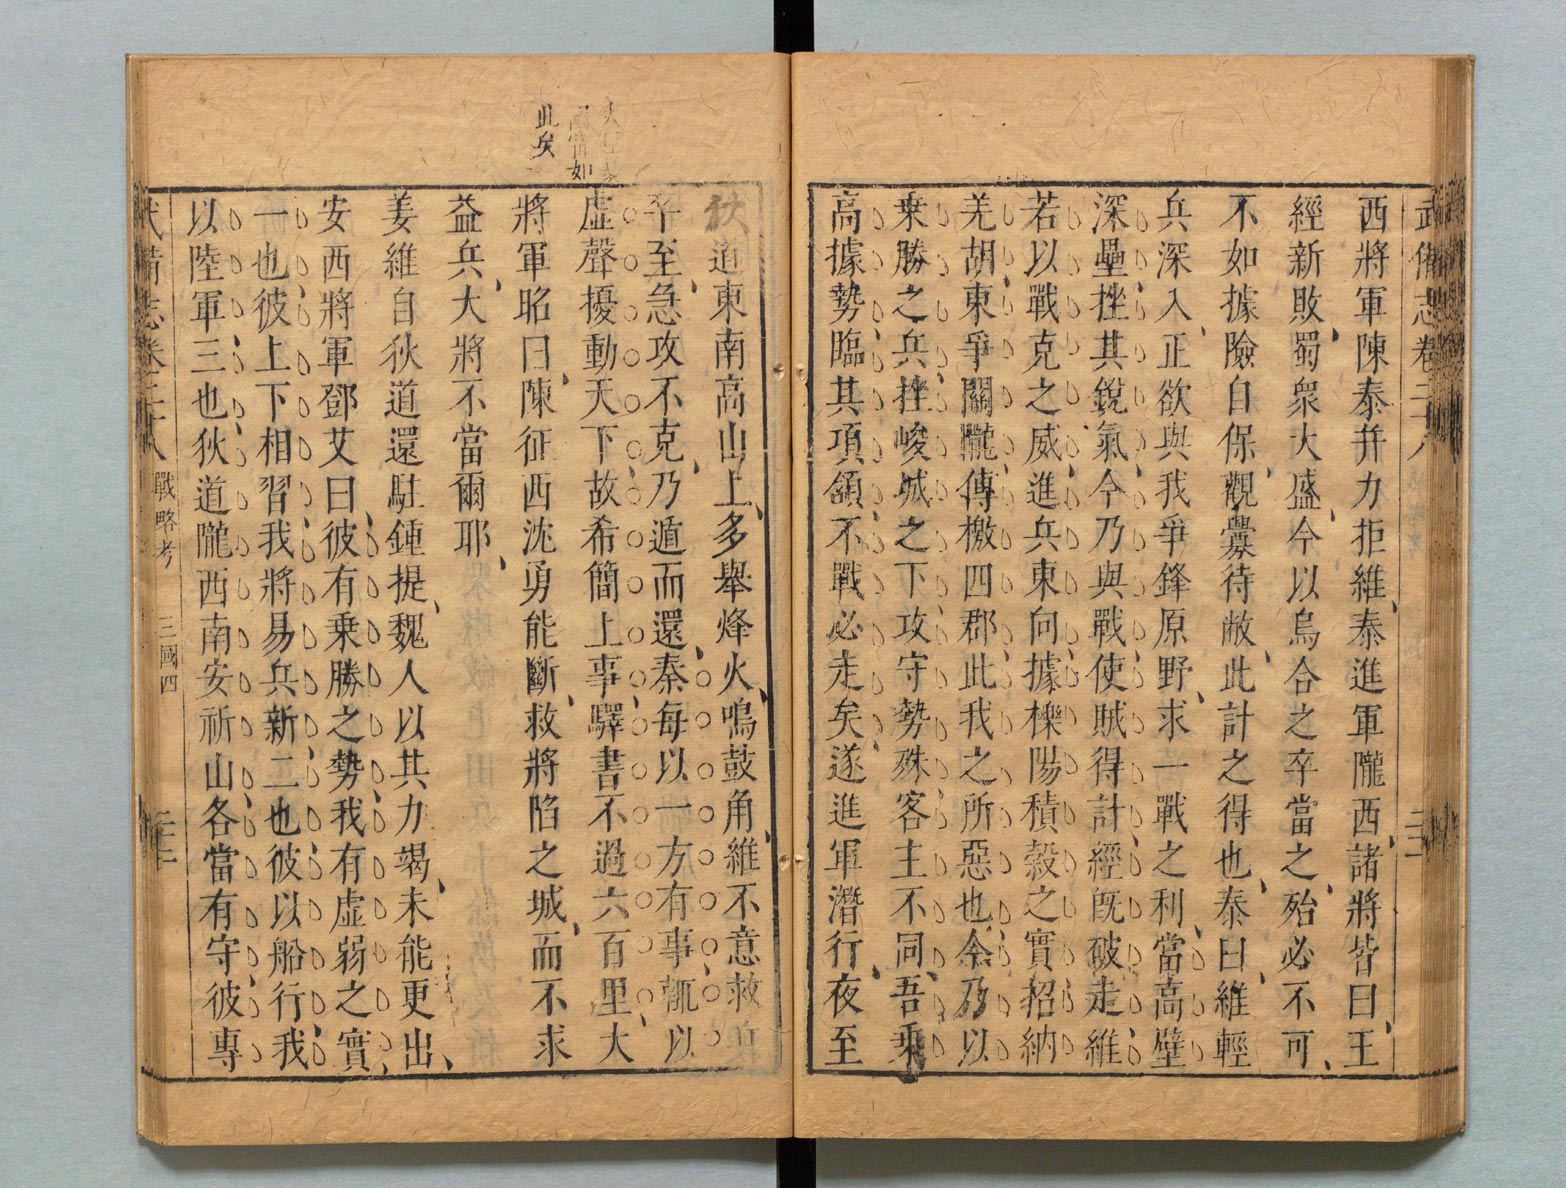 武備志卷二十八
西將軍陳泰并力拒維泰進軍隴西諸將皆曰王
經新敗蜀衆大盛今以烏合之卒當之殆必不可
不如據險自保觀釁待敝此計之得也泰曰維輕
兵深入正欲與我爭鋒原野求一戰之利當高壁
深壘挫其銳氣今乃與戰使賊得計經旣破走維
若以戰克之威進兵東向據櫟陽積榖之實招納
羌胡東爭關隴傳檄四郡此我之所惡也今乃以
乗勝之兵挫峻城之下攻守勢殊客主不同吾乗
高據勢臨其項領不戰必走矣遂進軍潛行夜至
狄道東南高山上多舉烽火鳴鼓角維不意救兵
卒至急攻不克乃遁而還泰每以一方有事輒以
虛聲擾動天下故希簡上事驛書不過六百里大
將軍昭曰陳征西沈勇能斷救將陷之城而不求
益兵大將不當爾耶
姜維自狄道還駐鍾提魏人以其力竭未能更出
安西將軍鄧艾曰彼有乗勝之勢我有虛弱之實
一也彼上下相習我將易兵新二也彼以船行我
以陸軍三也狄道隴西南安祈山各當有守彼專
武備志卷二十八 戰略考 三國四 二十二
如
此矣